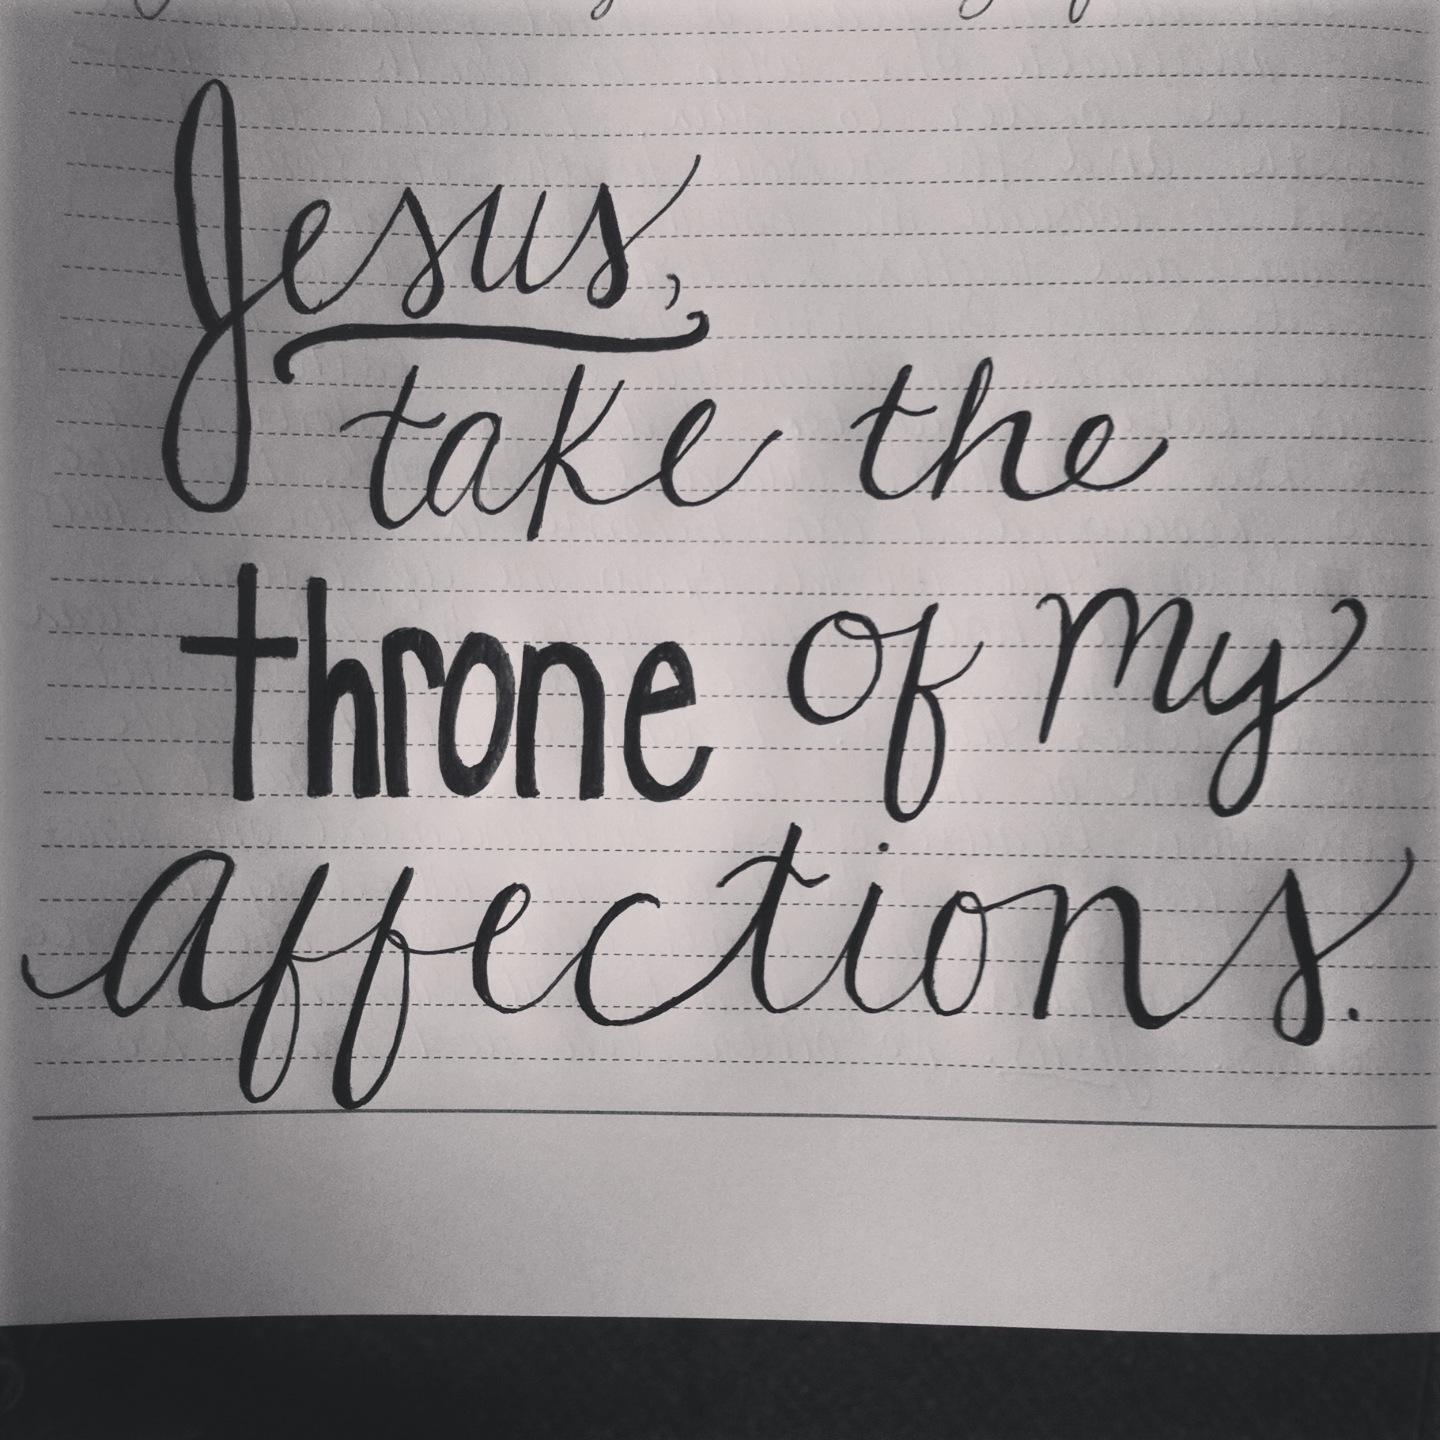 Jesus,
take the
throne of my
affections.